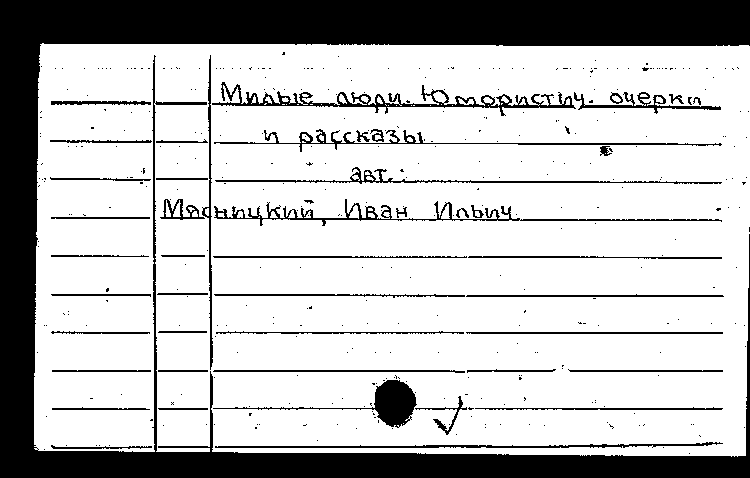 Милые люди. Юмористич. очерки
и рассказы
авт.:
Мясницкий, Иван Ильич